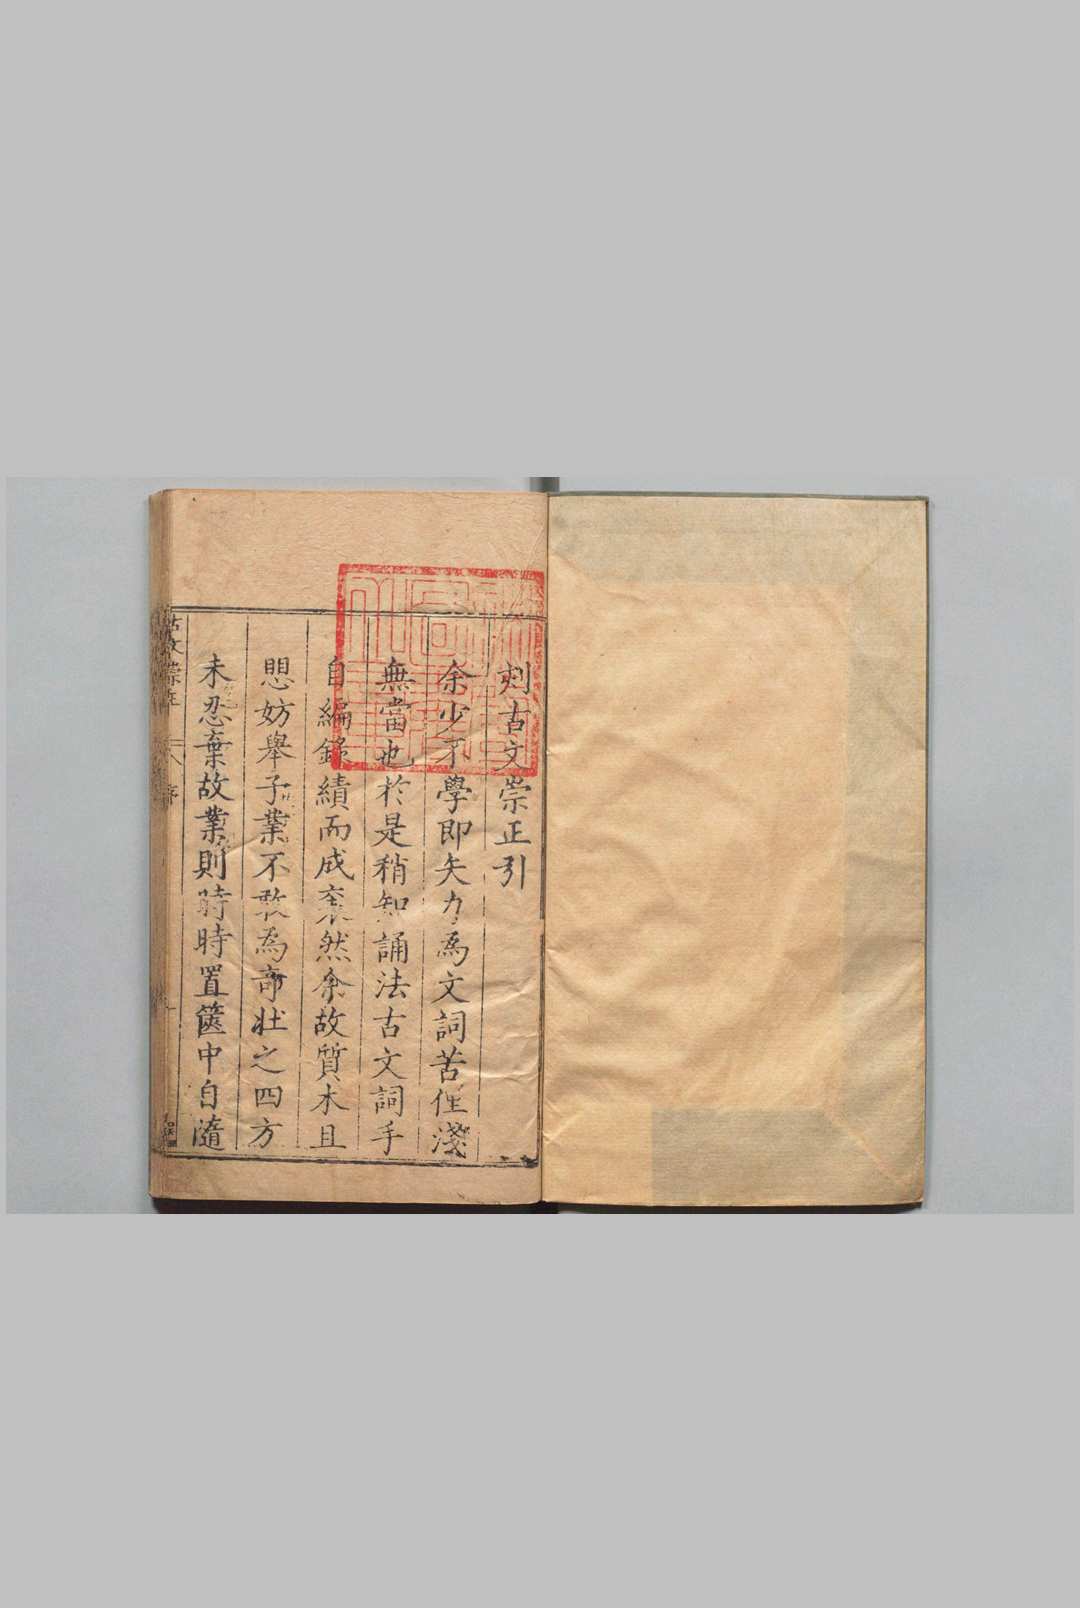 刻古文崇正引
余少不學即矢力為文詞苦俚淺
無當也於是稍知誦法古文詞手
自編錄績而成袠然余故質木且
愳妨舉子業不敢為奇壯之四方
未忍棄故業則時時置篋中自隨
古文崇正
序